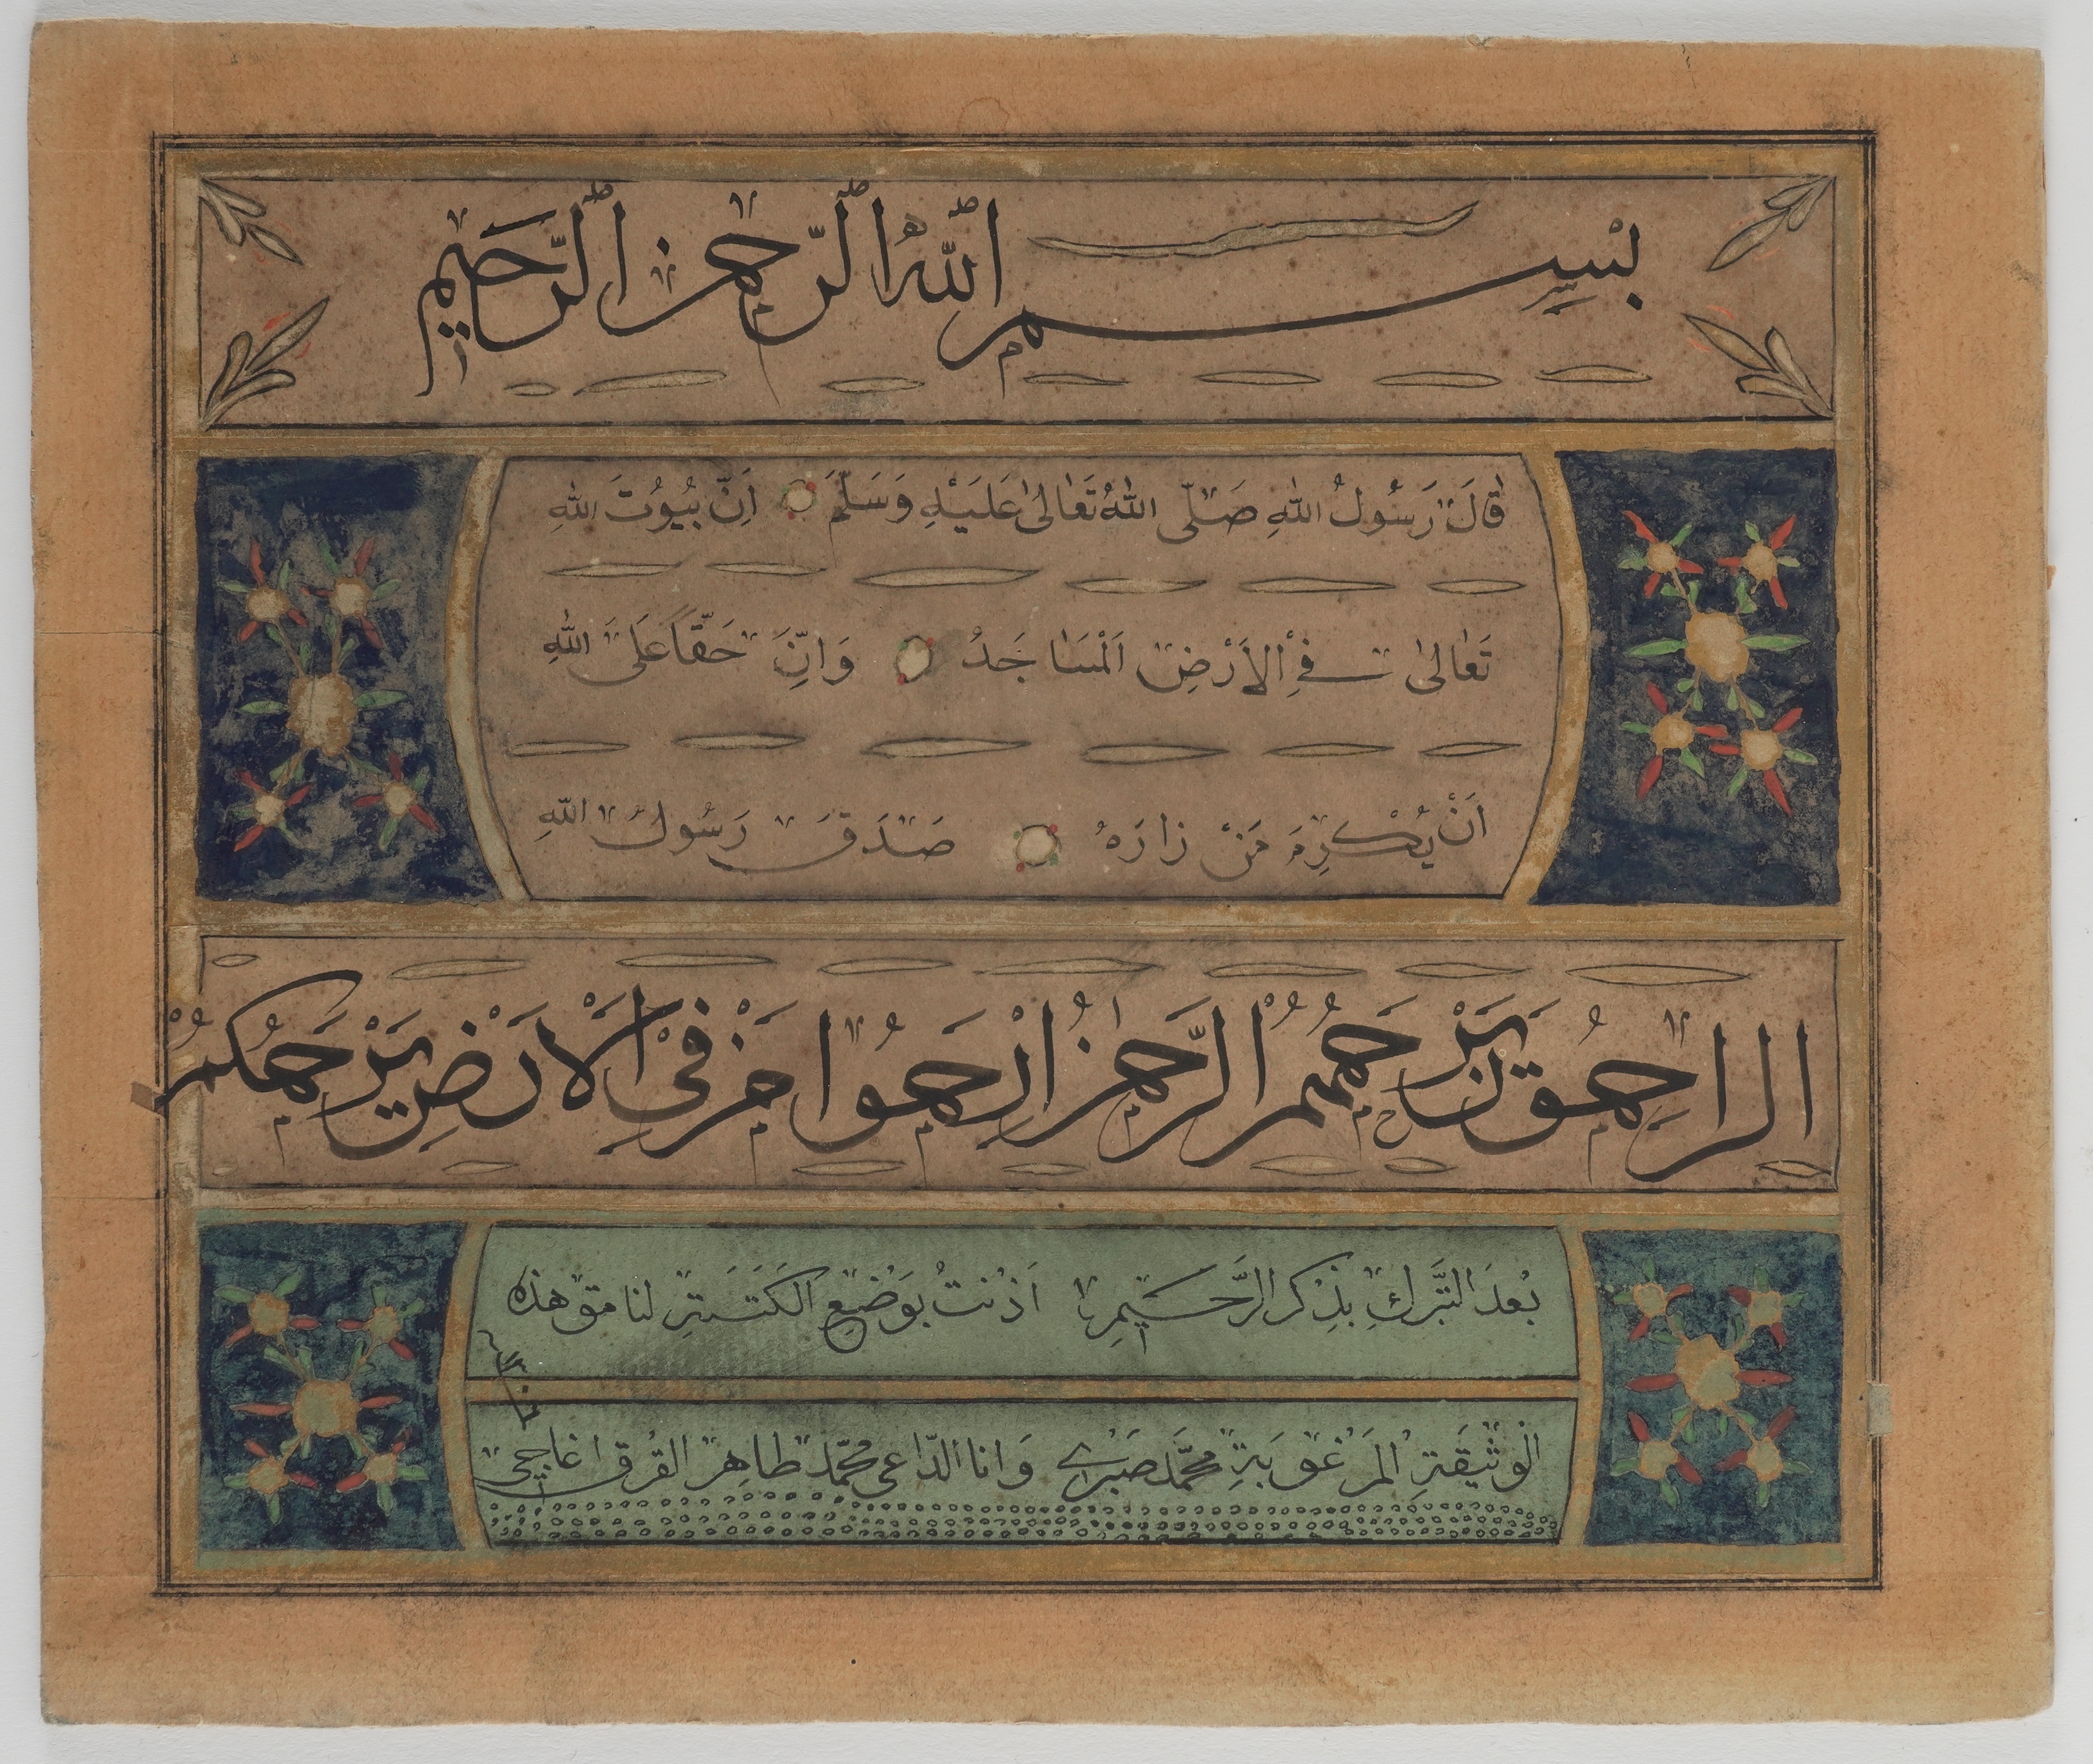 بِسْمِ اللّٰهِ الرَّحْمٰنِ الرَّحِيمِ
قَالَ رَسُولُ اللّٰهِ صَلَّى اللّٰهُ تَعَالٰى عَلَيْهِ وَسَلَّمَ اِنَّ بُيُوتَ اللّٰهِ
تَعَالٰى فِى الْاَرْضِ اَلْمَسَاجَدُ وَاِنَّ حَقًّا عَلَى اللّٰهِ
اَنْ يُكْرِمَ مَنْ زَارَهُ صَدَقَ رَسُولُ اللّٰهِ
الرَّاحِمُونَ يَرْحَمُهُمُ الرَّحْمٰنُ اِرْحَمُوا مَنْ فِى الْاَرْضِ يَرْحَمْكُمْ
بَعْدَ التَّبَرُّكِ بِذِكْرِ الرَّحِيمِ اَذِنْتُ بِوَضْعِ الْكَتَبَةِ لنامق هذه
الْوَثِيقَةِ الْمَرْغُوبَةِ مُحَمَّد صَبْرِى وَانا الدَّاعى مُحَمَّد طَاهِر القُرق اغاجى